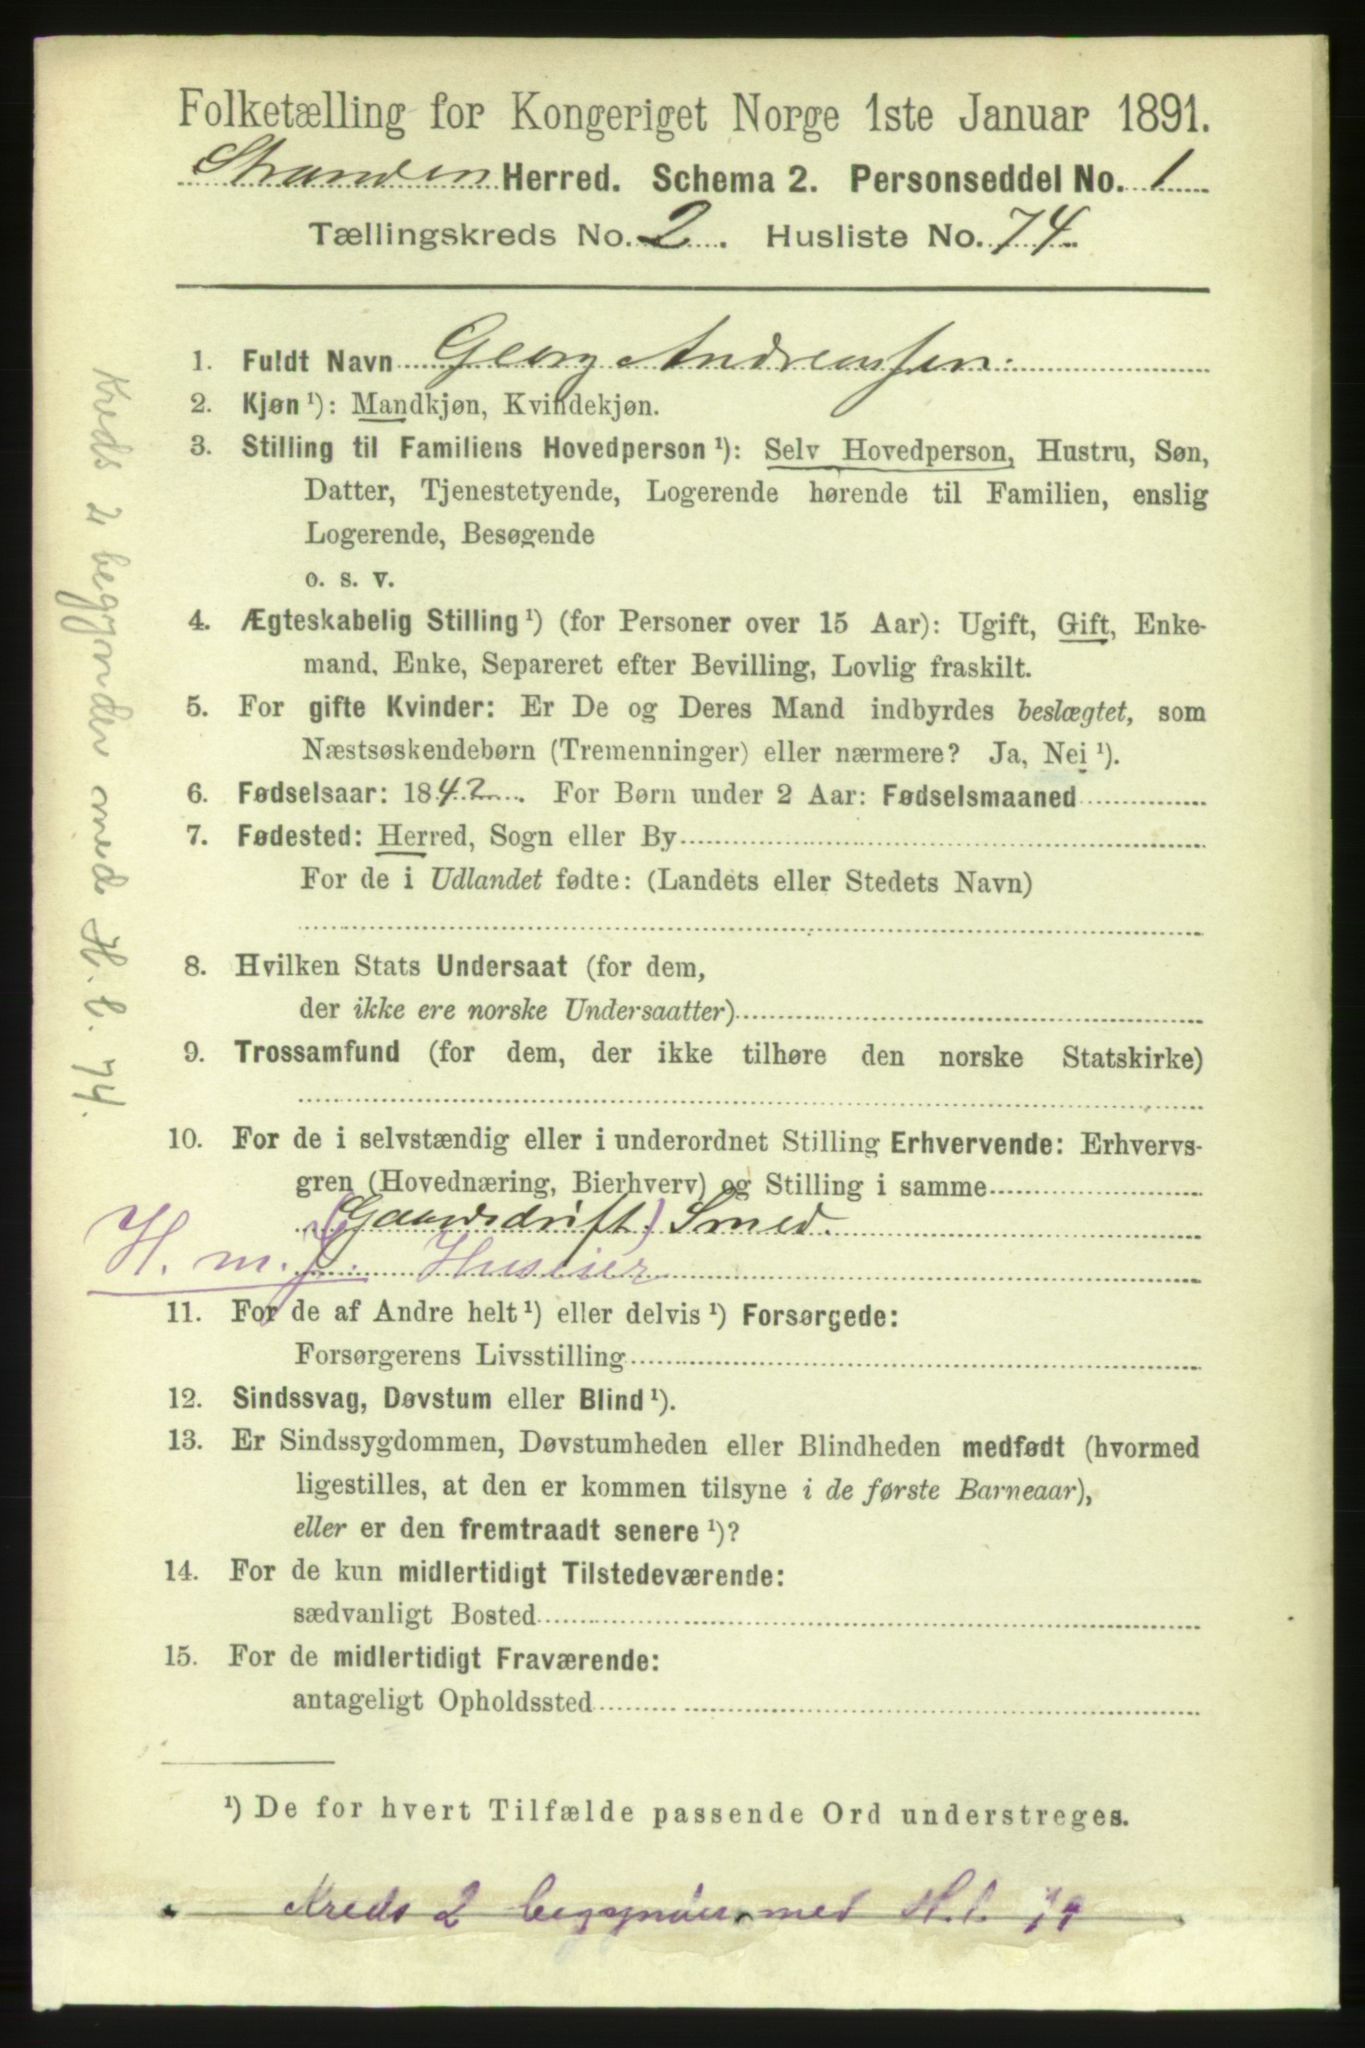 Folketælling for Kongeriget Norge 1ste Januar 1891.
Stranden Herred. Schema 2. Personseddel No. 1
Tællingskreds No. 2. Husliste No. 74
1. Fuldt Navn Georg Andreassen.
2. Kjøn ¹): Mandkjøn, Kvindekjøn.
3. Stilling til Familiens Hovedperson ¹): Selv Hovedperson, Hustru, Søn,
Datter, Tjenestetyende, Logerende hørende til Familien, enslig
Logerende, Besøgende
o. s. v.
4. Ægteskabelig Stilling ¹) (for Personer over 15 Aar): Ugift, Gift, Enke-
mand, Enke, Separeret efter Bevilling, Lovlig fraskilt.
5. For gifte Kvinder: Er De og Deres Mand indbyrdes beslægtet, som
Næstsøskendebørn (Tremenninger) eller nærmere? Ja, Nei ¹).
6. Fødselsaar: 1842. For Børn under 2 Aar: Fødselsmaaned
7. Fødested: Herred, Sogn eller By
For de i Udlandet fødte: (Landets eller Stedets Navn)
8. Hvilken Stats Undersaat (for dem,
der ikke ere norske Undersaatter)
9. Trossamfund (for dem, der ikke tilhøre den norske Statskirke)
10. For de i selvstændig eller i underordnet Stilling Erhvervende: Erhvervs-
gren (Hovednæring, Bierhverv) og Stilling i samme
(Gaardsdrift) Smed.
H. m. j. Huseier
11. For de af Andre helt ¹) eller delvis ¹) Forsørgede:
Forsørgerens Livsstilling
12. Sindssvag, Døvstum eller Blind ¹).
13. Er Sindssygdommen, Døvstumheden eller Blindheden medfødt (hvormed
ligestilles, at den er kommen tilsyne i de første Barneaar),
eller er den fremtraadt senere ¹)?
14. For de kun midlertidigt Tilstedeværende:
sædvanligt Bosted
15. For de midlertidigt Fraværende:
antageligt Opholdssted
¹) De for hvert Tilfælde passende Ord understreges.
Kreds 2 begynder med H.l. 74
Kreds 2 begynder med H.l. 74.